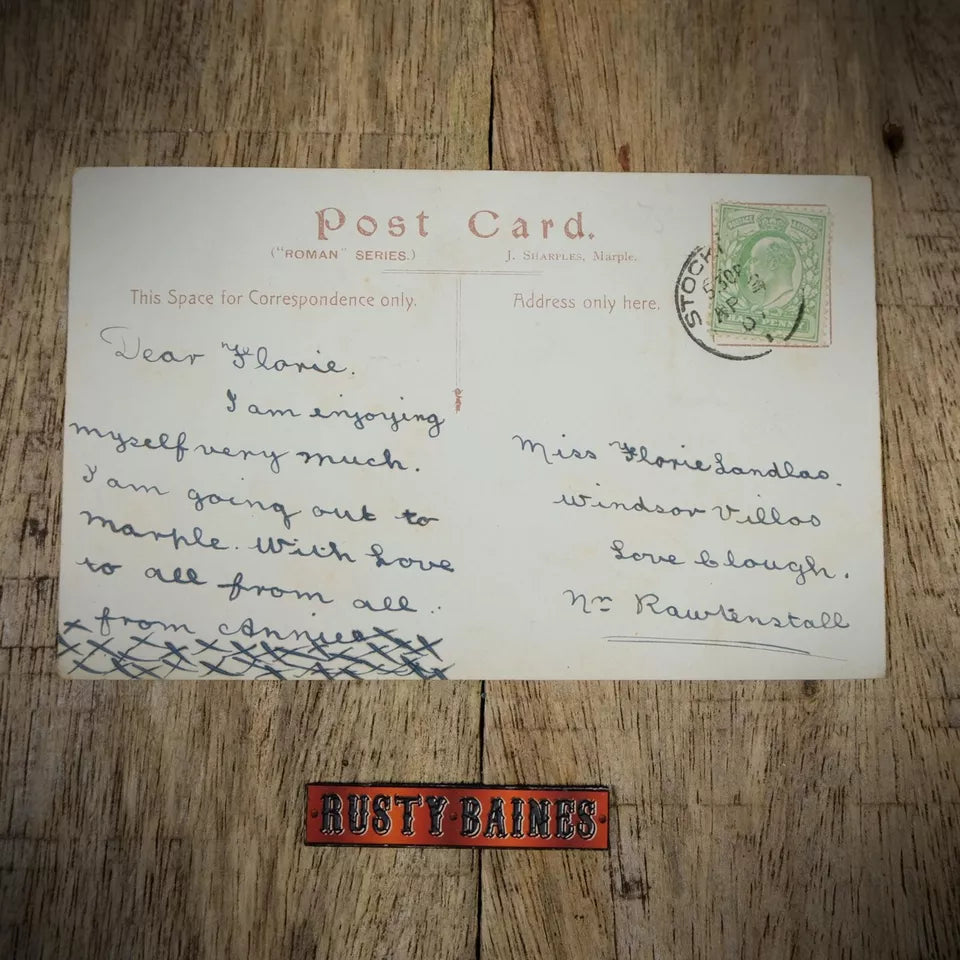 Post Card.
("ROMAN" SERIES.) J. SHARPLES, Marple.
This Space for Correspondence only.
Address only here.
Dear Florie.
I am enjoying
myself very much.
I am going out to
marple. With Love
to all from all.
from Annie
Miss Florie Landlas.
Windsor Villas
Love Clough.
Nr Rawtenstall
STOCKP
5 30 PM
AP
07
RUSTY BAINES